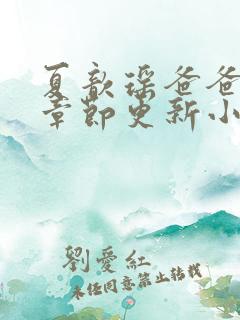 夏歆瑶爸爸
章節更新小
劉愛紅
未经同意禁止转载